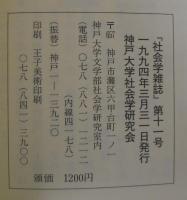 『社会学雑誌』第十一号
一九九四年三月三一日発行
神戸大学社会学研究会
〒657 神戸市灘区六甲台町一ノ一
神戸大学文学部社会学研究室内
(電話) 〇七八(八八一)一二一二
(内線四一七八)
(振替) 神戸一―一三九二〇
印刷 王子美術印刷
〇七八(八四一)三九〇〇
頒価 1200円